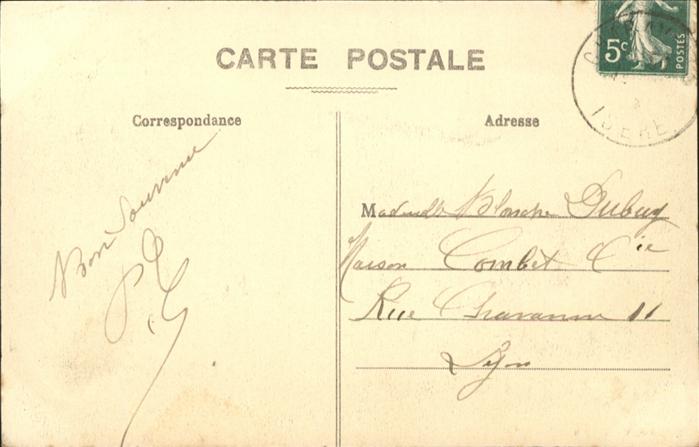 CARTE POSTALE
5c
POSTES
ISERE
Correspondance
Bon Souvenir
Adresse
Mademlle Blanche Dubuy
Maison Combet Cie
Rue Chavanne 11
Lyon